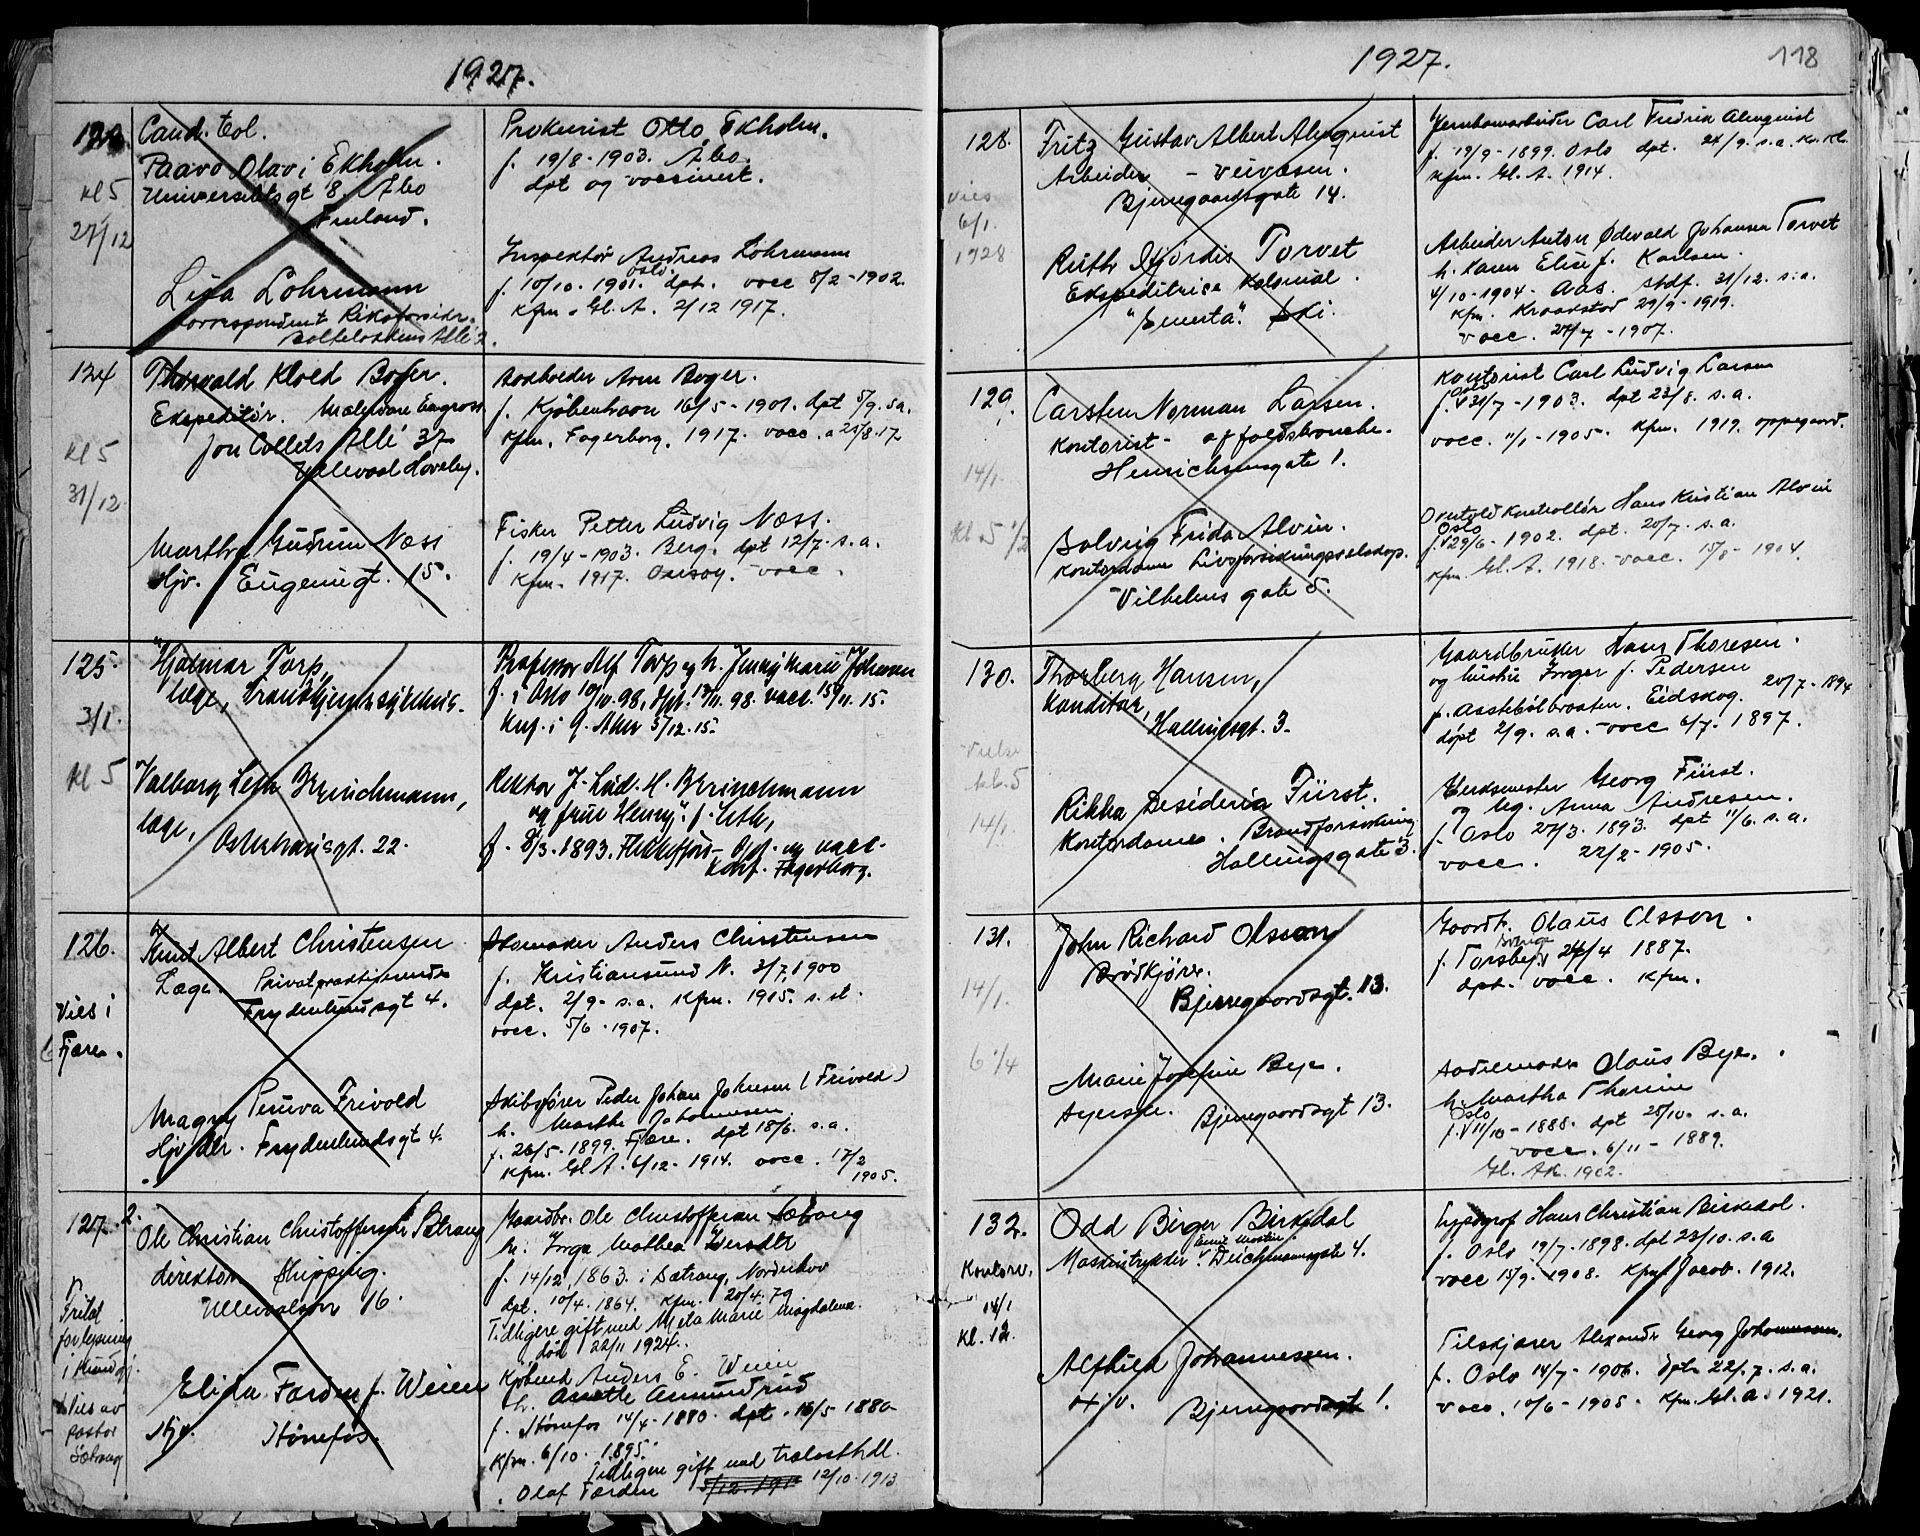 1927.
Cand. 
Paavo Olavi Ekholm.
Universitetsgt 8, Åbo
Finland.
Kl 5
27/12
Lisa Lohrmann
Korrespondent
Prokurist Otto Ekholm.
f. 19/8-1903. Åbo.
dpt og vaccinert.
Inspektør Andreas Lohrmann
f. 10/10-1901. Oslo. dpt. vacc 8/2-1902.
Kfm. Gl. A. 2/12 1917.
124
Kl 5
31/12
Thorvald Kloed Boger.
Ekspeditør. Malervare Engros
Jon Collets Allé 37
Ullevaal Haveby.
Marthe Gudrun Næss
Hjv. Eugeniegt. 15.
Arne Boger.
f. Kjøbenhavn 16/5-1901. dpt 5/9. s.a.
Kfm. Fagerborg. 1917. vacc. 25/8.17
Fisker Petter Ludvig Næss.
f. 19/4-1903. Berg. dpt 12/7. s.a.
Kfm. 1917. Onsøy. vacc.
125.
3/1.
Kl 5
Hjalmar Torp,
læge,
Valborg Leth Brinchmann,
læge,
Oskarsgt. 22.
Professor Alf Torp og h. Jenny Marie Johnsen
f. i Oslo 10/10.98, dpt. 13/11. 98. vacc. 15/11. 15.
Knf. i G. Aker 5/12.15.
Rektor J. Lud. M. Brinchmann
og frue Henny f. Leth,
f. 8/3.1893. Dpt. og vacc.
Konf. Fagerborg.
126.
Vies i
Fjære.
Knut Albert Christensen
Læge. Privatpraktiserende
Frydenlundsgt 4.
Magny Peruva Frivold
Hjv Str. Frydenlundsgt 4.
Skomaker Anders Christensen
f. Kristiansund N. 3/7, 1900
dpt. 2/9. s.a. Kfm. 1915. s. st.
vacc. 5/6. 1907.
Skibsfører Peder Johan Johnsen (Frivold)
h. Marthe Johannesen
f. 26/5-1899. Fjære. dpt 18/6. s.a.
Kfm. Gl. A. 6/12-1914. vacc. 17/2
1905.
127.
Fritat
for lysning
Vies av
pastor
Sætrang
2.
Ole Christian Christoffersen Sætrang
direktør Shipping.
Ullevaalsvn 16.
Elida Færden f. Weien
Hjv. Hønefos.
Gaardbr. Ole Christoffersen Sætrang
h. Inga Mathea
f. 14/12, 1863. i Sætrang, Norderhov
dpt. 10/4. 1864. Kfm. 20/4. 79
Tidligere gift med Meta Marie Magdalena
død 22/11 1924.
Kjøbmd Anders E. Weien
h. Anette Amundrud
f. Hønefos 14/4-1880. dpt. 16/5 1880
Kfm. 6/10. 1895.
Tidligere gift med trælasthdl.
Olaf Færden 5/12.191 12/10-1913
1927.
118
128.
Vies
6/1.
1928
Fritz Gustav Albert Almquist
Arbeider - veivæsen.
Bjerregaardsgate 14.
Ruth Hjørdis Torvet
Ekspeditrise Kolonial.
"Smerta". Ski.
Jernbanearbeider Carl Fredrik Almquist
f. 19/9-1899. Oslo dpt. 24/9. s.a.
Kfm. Gl. A. 1914.
Arbeider Anton Johansen Torvet
h. Karen Elise f. Karlsen.
4/10-1904. Aas. stdf. 31/12. s.a.
Kfm. Kraakstad 29/9-1919.
vacc. 27/7-1907.
129.
14/1.
Kl. 5 1/2
Carsten Norman Larsen.
Kontorist-
Henrichsensgate 1.
Solveig Frida Alvin.
Kontordame Livsforsikringsselskap.
Vilhelms gate 5.
Kontorist Carl Ludvig Larsen
Oslo
f. 31/7-1903. dpt 23/8. s.a.
vacc. 11/1-1905. Kfm. 1919. Oppegaard.
Hans Kristian Alvin
Oslo
f. 29/6-1902. dpt. 20/7. s.a.
Kfm. Gl. A. 1918. vacc. 15/8-1904.
130.
kl. 5
14/1.
Thorberg Hansen,
Konditor,
Hallingsgt. 3.
Rikka Desideria Fürst.
Kontordame. Brandforsikring
Hallingsgate 3.
Gaardbruker Hans Thoresen.
og hustru Inger f. Pedersen
f. Eidskog. 20/7-1894
døpt 2/9. s.a. vacc 6/7. 1897.
Verksmester Georg Fürst.
og hg. Anna Andresen.
f. Oslo 27/3. 1893. dpt 11/6. s.a.
vacc. 22/2-1905.
131.
14/1.
John Richard Olsson
Brødkjører.
Bjerregaardsgt. 13.
Marie Josefine Bye.
Syerske. Bjerregaardsgt 13.
Gaardbr. Olaus Olsson.
f. Torsby 24/4 1887.
dpt. vacc. Kfm.
Sadelmaker Olaus Bye.
h. Martha Thorine
Oslo
f. 11/10-1888. dpt 25/10. s.a.
vacc. 6/11-1889.
Gl. Ak. 1902.
132.
Kontorv.
14/1
Kl. 12.
Odd Birger Birkedal
Maskintrykker. Deichmannsgate 4.
Alfhild Johannessen.
Hjv. Bjerregaardsgt 1.
Typograf Hans Christian Birkedal.
f. Oslo 19/7-1898. dpt 23/10. s.a
vacc 15/9. 1908. Kfm Jacob. 1912.
Tilskjærer Alexander Georg Johannessen.
f. Oslo 14/7-1906. dpt. 22/7. s.a.
vacc. 10/6-1908. Kfm. Gl. A. 1921.